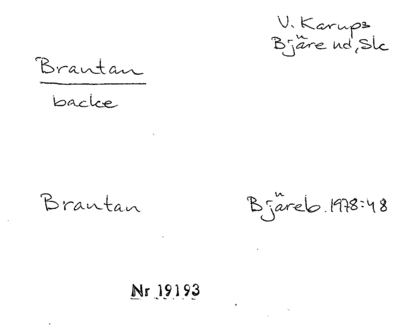 V. Karups
Bjäre hd, Sk
Brantan
backe
Brantan
Bjäreb. 1978:48
Nr 19193